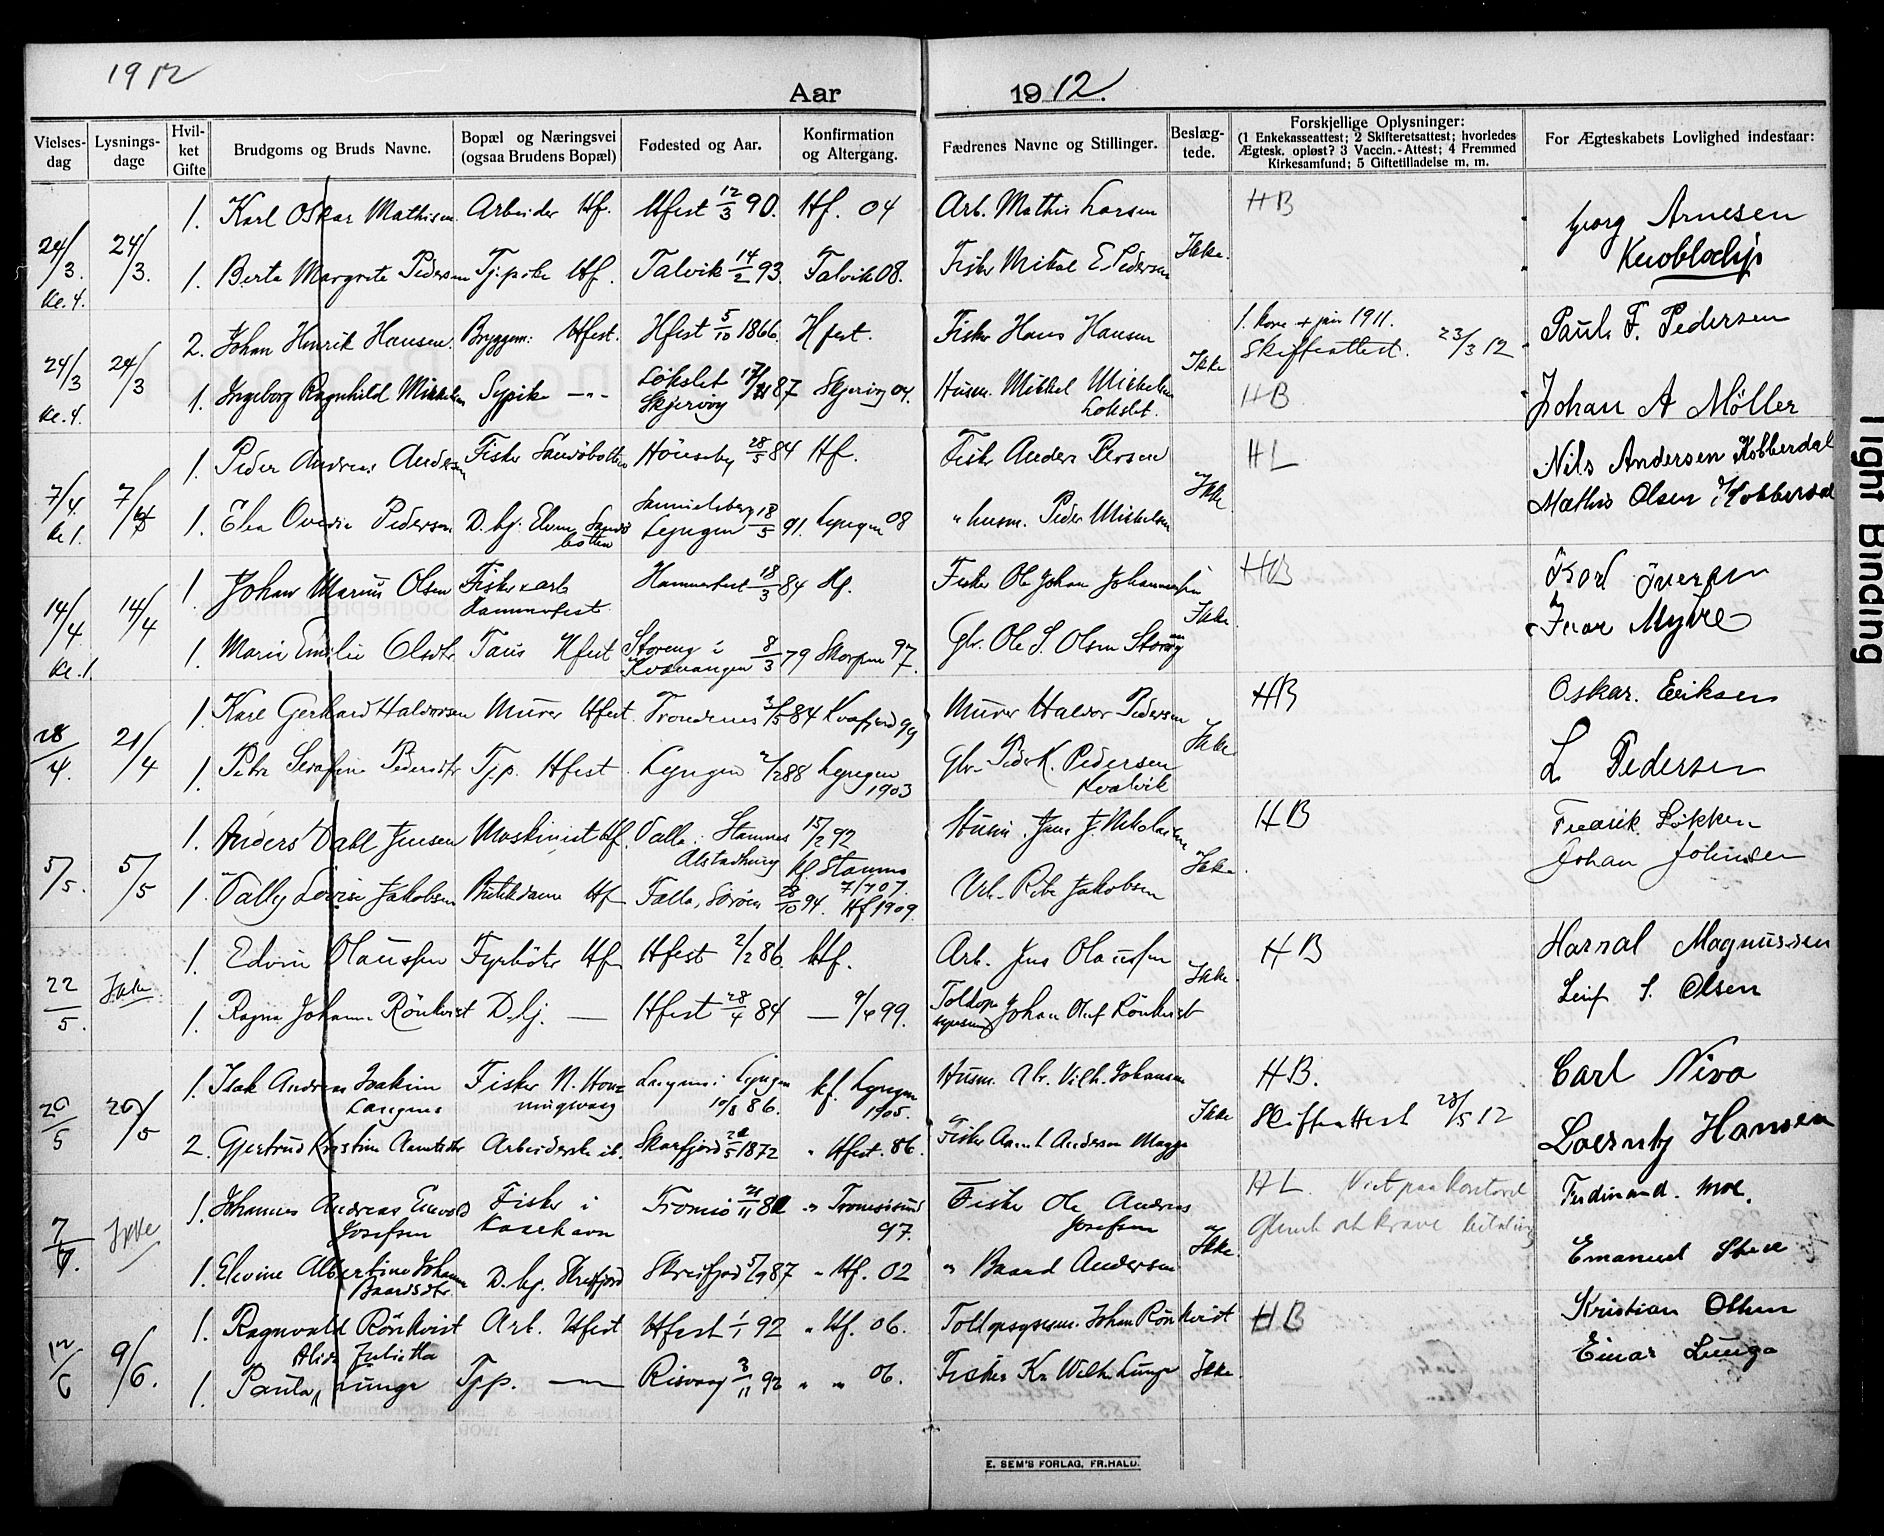 1912
Aar 1912.
Vielses-dag Lysnings-dage Hvil-ket Gifte Brudgoms og Bruds Navne. Bopæl og Næringsvei (ogsaa Brudens Bopæl) Fødested og Aar. Konfirmation og Altergang. Fædrenes Navne og Stillinger. Beslæg-tede. Forskjellige Oplysninger: (1 Enkekasseattest; 2 Skifteretsattest; hvorledes Ægtesk. opløst? 3 Vaccin.-Attest; 4 Fremmed Kirkesamfund; 5 Giftetilladelse m. m. For Ægteskabets Lovlighed indestaar:
24/3. kl. 4. 24/3. 1. Karl Oskar Mathisen Arbeider Hf. Hfest 12/3 90. Hf. 04 Arb. Mathis Larsen Ikke. HB Georg Arnesen
1. Berta Margrete Pedersen Tjpike Hf. Talvik 14/2 93. Talvik 08. Fisker Mikal E. Pedersen
24/3 kl. 4. 24/3 2. Johan Henrik Hansen. Bryggem: Hfest. Hfest 5/10 1866. Hfest. Fisker Hans Hansen Ikke 1. kone + jan 1911. Skifteattest. 23/3 12 Paul F. Pedersen
1. Ingeborg Ragnhild Mikkelsen Sypike —"— Løkslet Skjervøy 87 Skjervøy 04. Husm. Mikkel Mikkelsen Løkslet. HB Johan A Möller
7/4. kl 1. 7/4 1. Peder Andreas Andersen Fisker Sandøbotten Hönseby 28/5 84 Hf. Fisker Anders Persen Ikke HL Nils Andersen Kobberdal
1. Elea Ovedie Pedersen D. hj. Elvin Sandøbotten Lyngen 18/5 91. Lyngen 08 " husm. Peder Mikkelsen Mathis Olsen Kobberdal
14/4 kl. 1. 14/4 1. Johan Marius Olsen Fisker & arb Hammerfest Hammerfest 18/3 84 Hf. Fisker Ole Johan Johannessen Ikke. HB Iversen
1. Marie Emilie Olsdtr Taus Hfest Storeng i Kvænangen 8/3 79 Skorpen 97. Gbr. Ole S. Olsen Storeng Ivar Myhre
28/4. 21/4 1. Karl Gerhard Haldorsen Murer Hfest. Trondenes 84 Kvæfjord 99 Murer Haldor Pedersen Ikke HB Oskar. Eriksen
1. Petra Serafine Pedersdtr Tjp. Hfest. Lyngen 88 Lyngen 1903 Gbr. Peder K. Pedersen Kvalvik L Pedersen
5/5. 5/5 1. Anders Dahl Jensen Maskinist Hf. Stamnes Alstadhaug 15/2 92 Husm. Jens J. Nikolaisen Ikke. HB Fredrik Løkken
1. Vally Lovise Jakobsen Butikdame Hf Sørøen 28/10 94. Hf 1909. Jakobsen Johan Johnsen
22/5. Ikke 1. Edvin Olaussen Fyrbøter Hf Hfest 2/2 86. Hf. Arb. Jens Olaussen Ikke HB Harral Magnussen
1. Ragna Johanne Rönkvist D. hj. — Hfest 28/4 84 — 99. Toldopsynsm. Johan Oluf Rönkvist Leif S. Olsen
26/5 26/5 1. Isak Andreas Joakim Fisker N. Honningsvaag Lyngen 86. kf. Lyngen 1905. Husm. Vilh. Johansen Ikke HB. Carl Nivo
2. Gjertrud Kristine Arntsdtr Arbeiderske ib. Skarfjord 1872 " Hfest. 86. Fisker Arnt Andersen Skifteattest 28/5 12 Hansen
7/6. Ikke 1. Johannes Andreas Josefsen Fisker i Kasehavn Tromsø 21/11 Tromsøsund 97. Fisker Ole Andreas Josefsen Ikke. HL. Viet paa kontoret Ferdinand. Moe.
1. Elevine Albertine Johanne Baardsdtr D. hj. Skreifjord Skreifjord 5/9 87 " Hf. 02 " Baard Andersen Emanuel
12/6 9/6. 1. Ragnvald Rönkvist Arb. Hfest Hfest 1/1 92 " Hf. 06. Toldopsynsm. Johan Rönkvist Ikke HB Kristian Olsen
1. Paula Alida Julietta Lunge Tjp. — Risvaag 3/11 92 " " 06. Fisker Kr Wilh. Lunge Einar Lunga
E. SEM'S FORLAG, FR.HALD.
Tight Binding